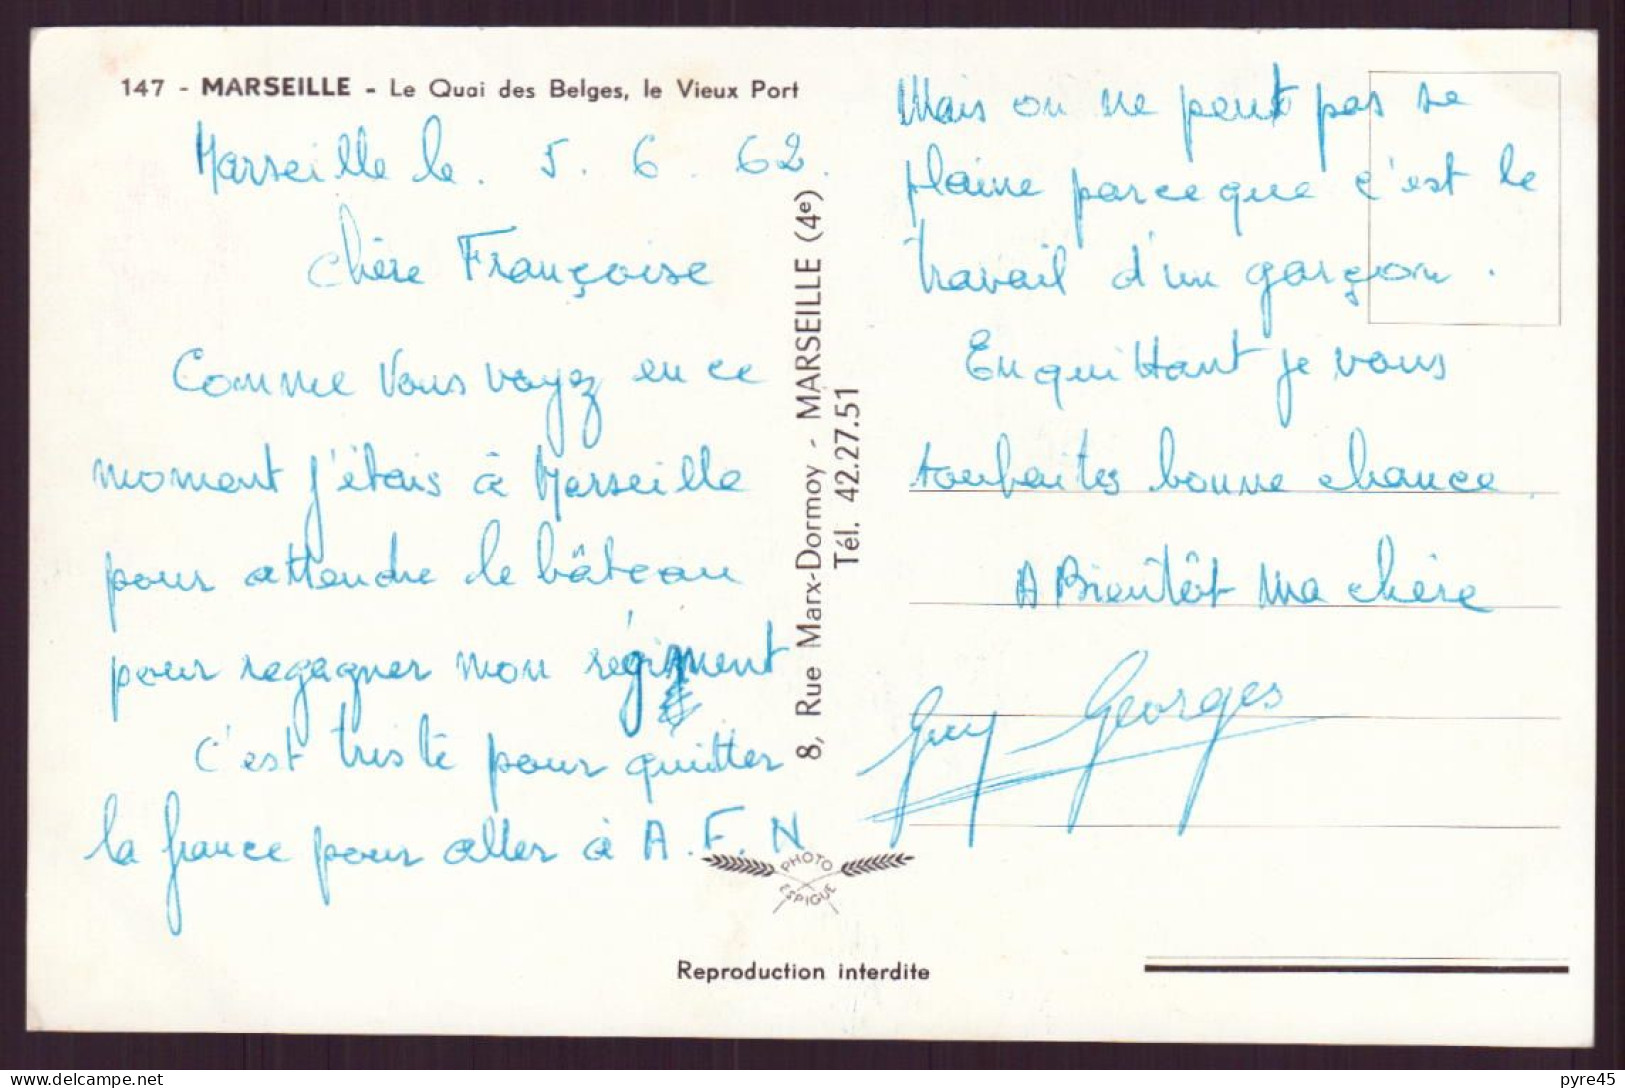 147 - MARSEILLE - Le Quai des Belges, le Vieux Port
Marseille le. 5. 6. 62.
chère Françoise
Comme vous voyez en ce
moment j'étais à Marseille
pour attendre le bâteau
pour regagner mon régiment
C'est triste pour quitter
la france pour aller à A.F.N
8, Rue Marx-Dormoy - MARSEILLE (4e)
Tél. 42.27.51
Mais on ne peut pas se
plaine parceque c'est le
travail d'un garçon.
En quittant je vous
souhaites bonne chance.
A Bientôt Ma chère
Guy Georges
PHOTO
ESPIGUE
Reproduction interdite
Delcampe.net
pyre45